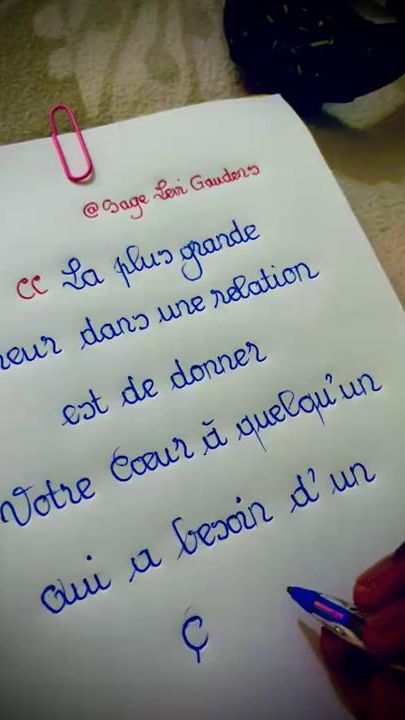 @Sage Levi Gaudens
cc La plus grande
reur dans une relation
est de donner
Votre Cœur à quelqu'un
qui a besoin d'un
Ç